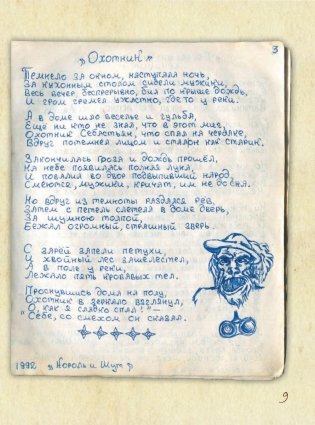 3
„Охотник"
Темнело за окном, наступала ночь,
За кухонным столом сидели мужики,
Весь вечер, беспрерывно, бил по крыше дождь,
И гром гремел ужастно, где то у реки.
А в доме шло веселье и гульба,
Еще ни кто не знал, что в этот миг,
Охотник Себастьян, что спал на чердаке,
Вдруг потемнел лицом и стал он как старик.
Закончилась гроза и дождь прошел,
На небе появилась полная луна,
И повалил во двор подвыпивший народ,
Смеются, мужики, кричат, им не до сна.
Но вдруг из темноты раздался рев,
Затем с петель слетела в доме дверь,
За шумною толпой,
Бежал огромный, страшный зверь.
С зарей запели петухи,
И хвойный лес зашелестел,
А в поле у реки,
Лежало пять кровавых тел.
Проснувшись дома на полу,
Охотник в зеркало взглянул,
„О, как я сладко спал!" —
Себе, со смехом он сказал.
1992 „Король и Шут"
9